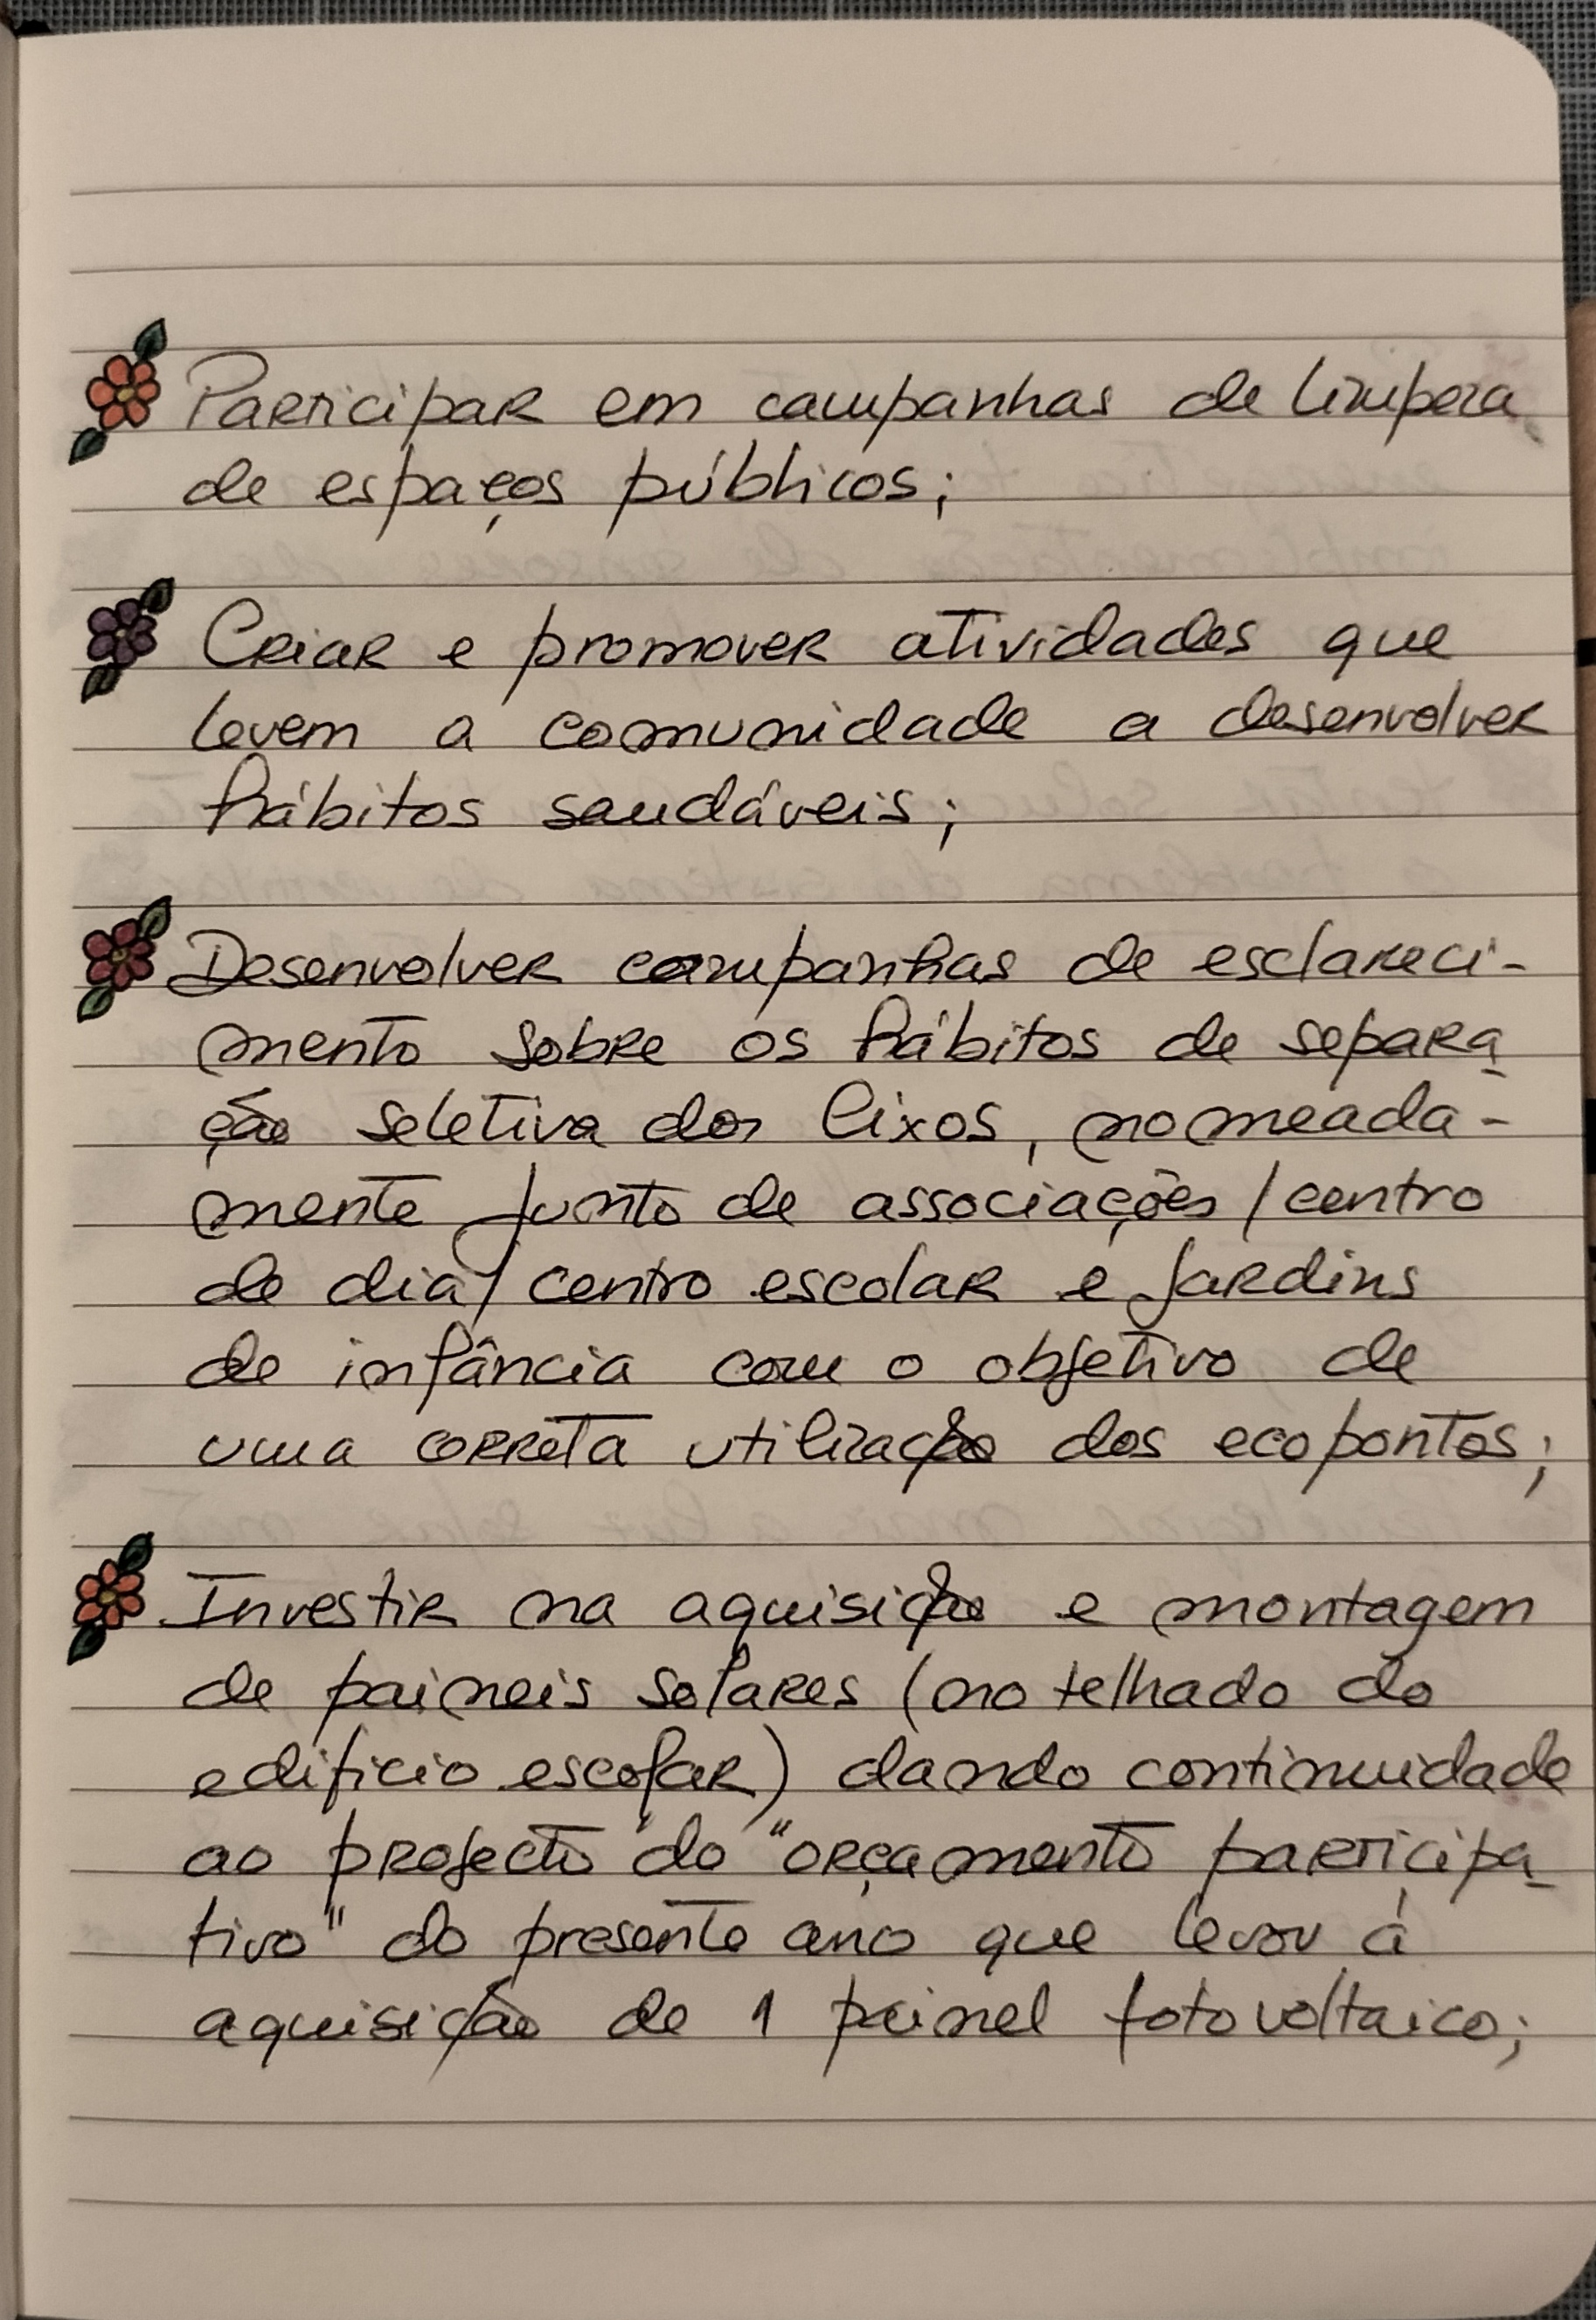 Participar em campanhas de limpeza
de espaços públicos;
Criar e promover atividades que
levem a comunidade a desenvolver
hábitos saudáveis;
Desenvolver campanhas de esclareci-
mento sobre os hábitos de separa
ção seletiva dos lixos, nomeada-
mente junto de associações/centro
de dia/centro escolar e jardins
de infância com o objetivo de
uma correta utilização dos ecopontos;
Investir na aquisição e montagem
de paineis solares (no telhado do
edificio escolar) dando continuidade
ao projecto do "orçamento participa
tivo" do presente ano que levou á
aquisição de 1 painel fotovoltaico;